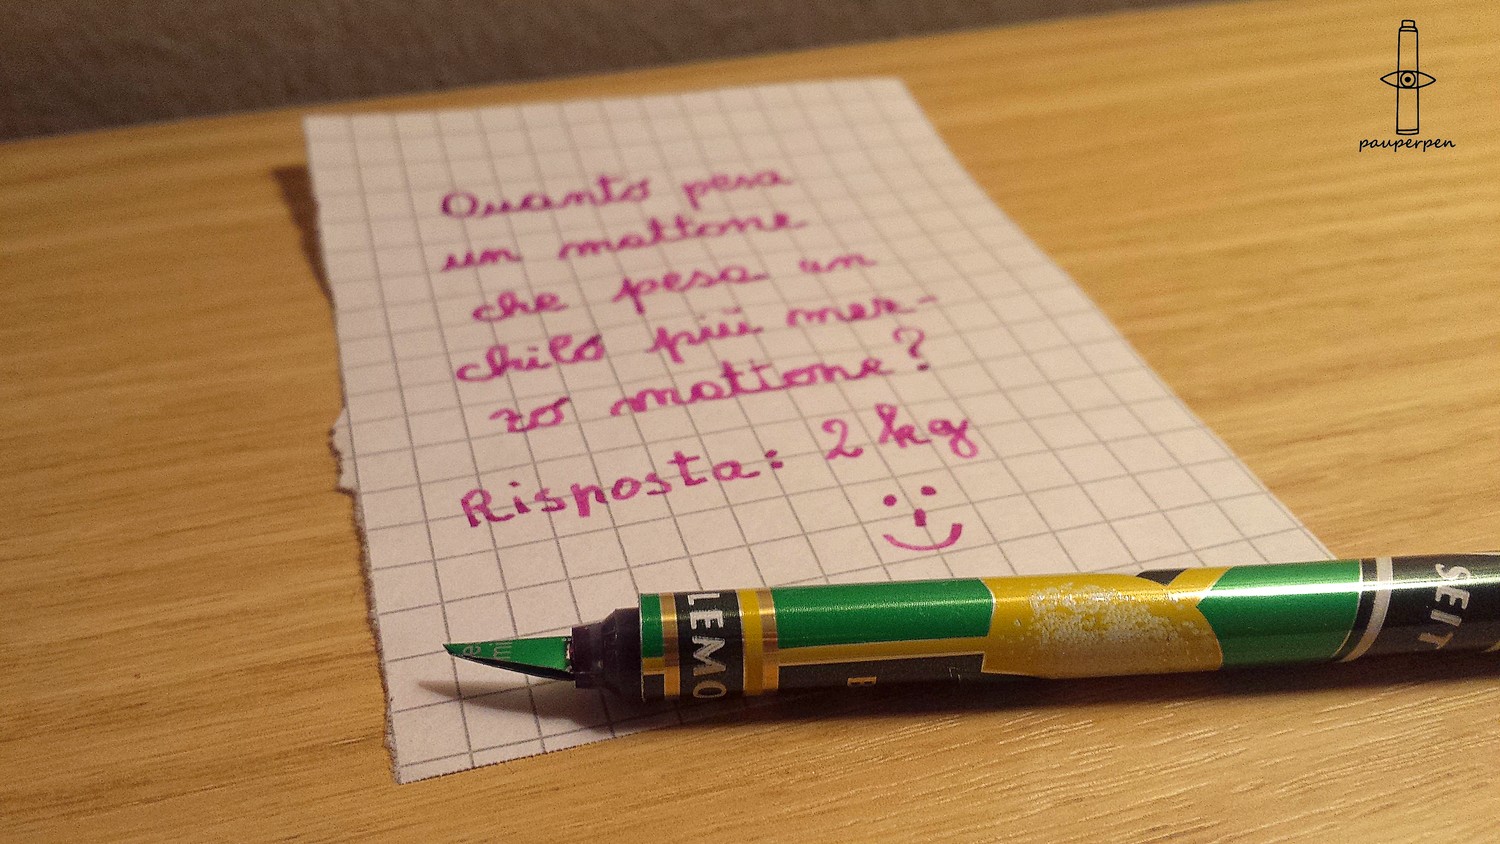 Quanto pesa
un mattone
che pesa un
chilo più mez-
zo mattone?
Risposta: 2 kg
pauperpen
LEMO
SEIT
mi